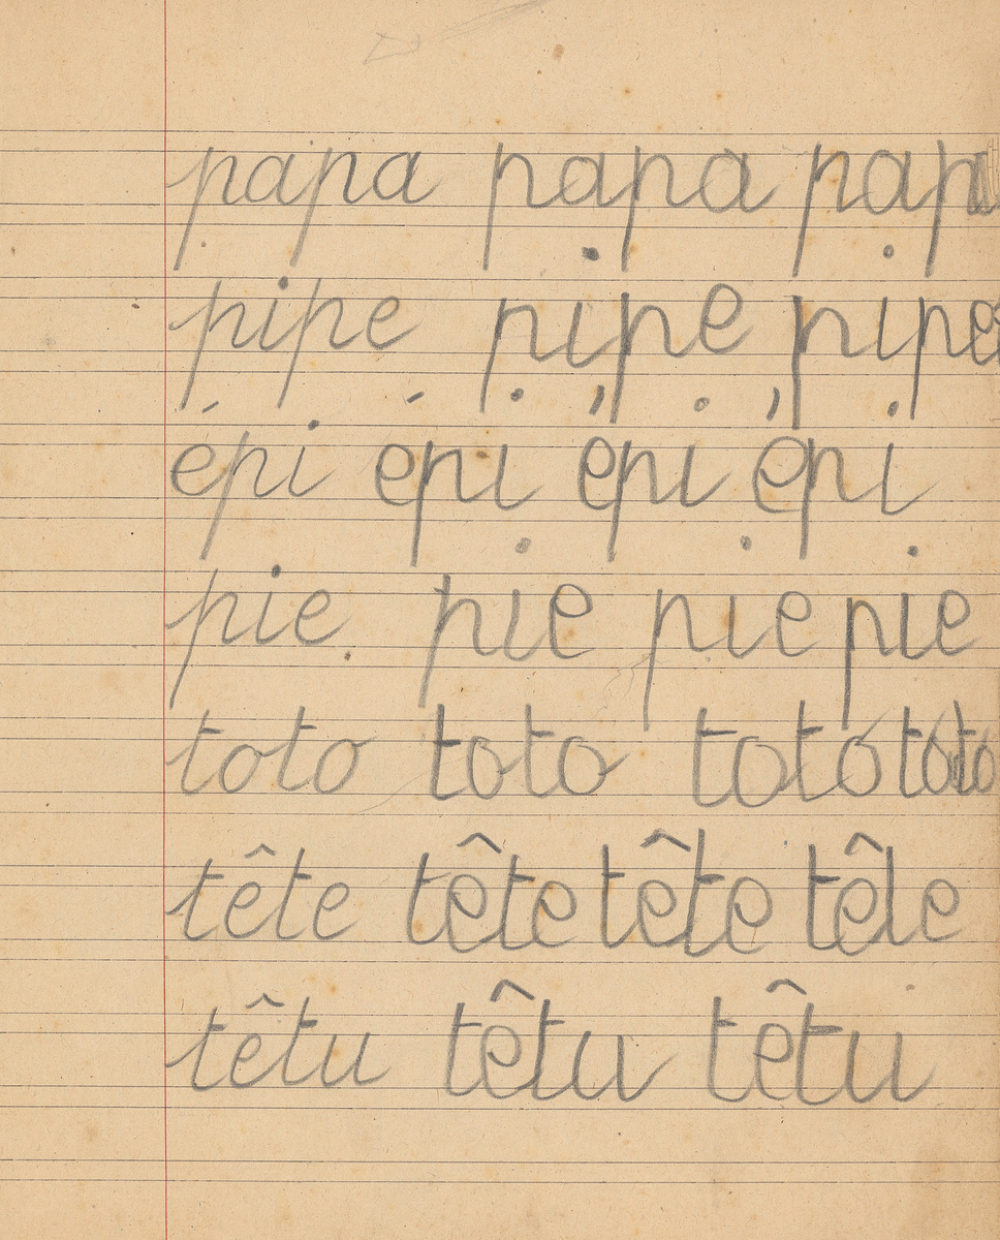 papa papa papa
pipe pipe pipe
épi épi épi épi
pie pie pie pie
toto toto toto toto
tête tête tête têle
têtu têtu têtu